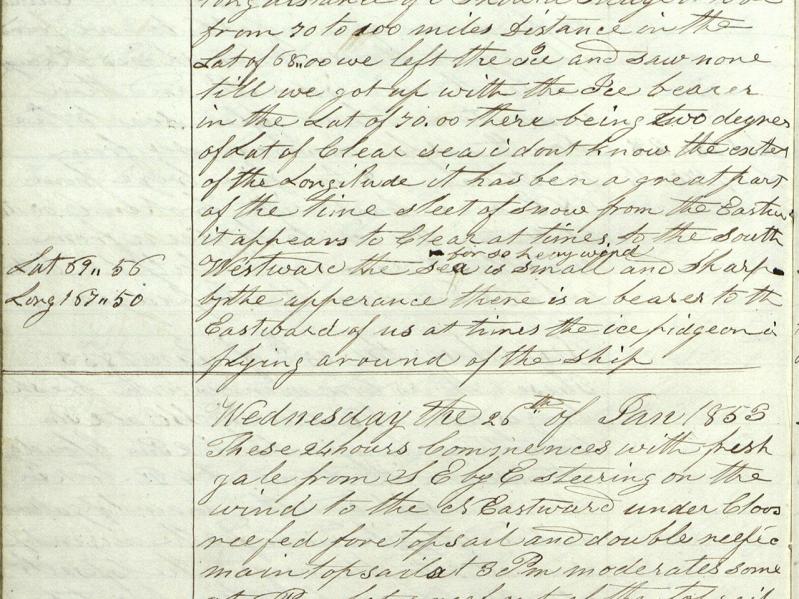 from 70 to 100 miles Distance in the
Lat of 68"00 we left the Ice and saw none
till we got up with the Ice bearer
in the Lat of 70.00 there being two degrees
of Lat of Clear sea i dont know the
of the Longitude it has ben a great part
of the time sleet of snow from the
it appears to Clear at times to the South
for so heavy wind
Lat 69" 56
Westward the sea is small and sharp
Long 167" 50
by the apperance there is a bearer to th
Eastward of us at times the ice pidgeon i
flying around of the Ship
Wednesday the 26th of Jan 1853
These 24 hours Commences with fresh
gale from S E by E steering on the
wind to the Eastward under Cloos
reefed foretopsail and double
main topsail at 3 Pm moderates some